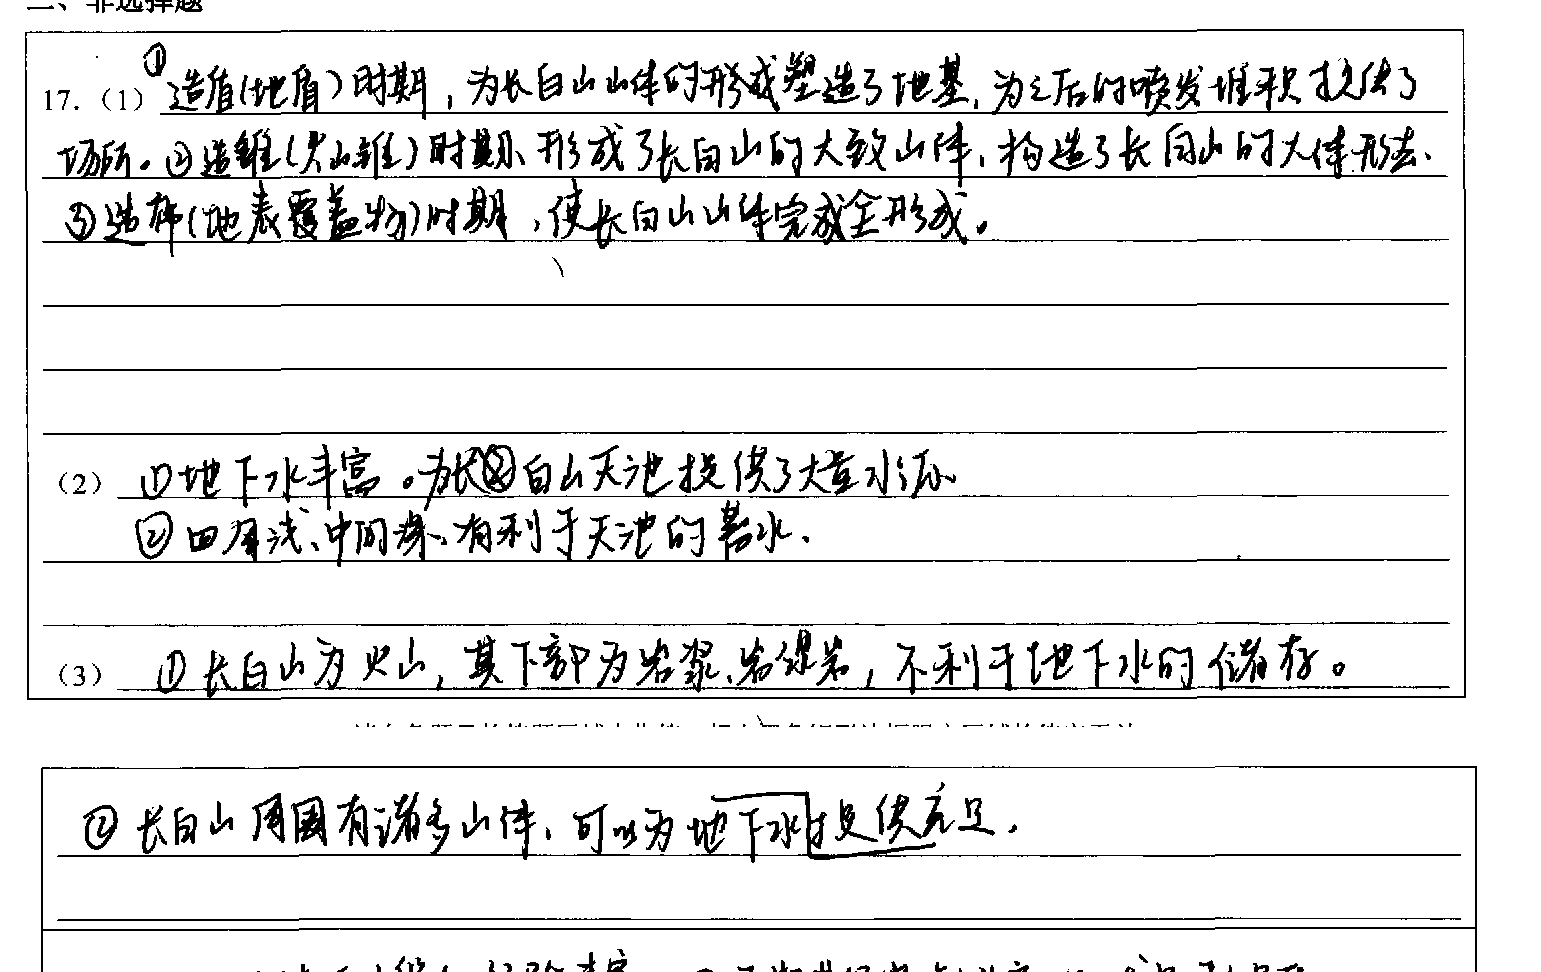 二、非选择题
17.（1）①造盾(地盾)时期，为长白山山体的形成塑造了地基，为之后的喷发堆积提供了
场所。②造锥(火山锥)时期、形成了长白山的大致山体，构造了长白山的大体形态、
③造布(地表覆盖物)时期，使长白山山体完成全形成。
（2）①地下水丰富。为长白山天池提供了大量水源
②四周浅、中间深、有利于天池的蓄水、
（3）①长白山为火山，其下部为岩浆、岩，不利于地下水的储存。
②长白山周围有诸多山体，可以为地下水提供充足，